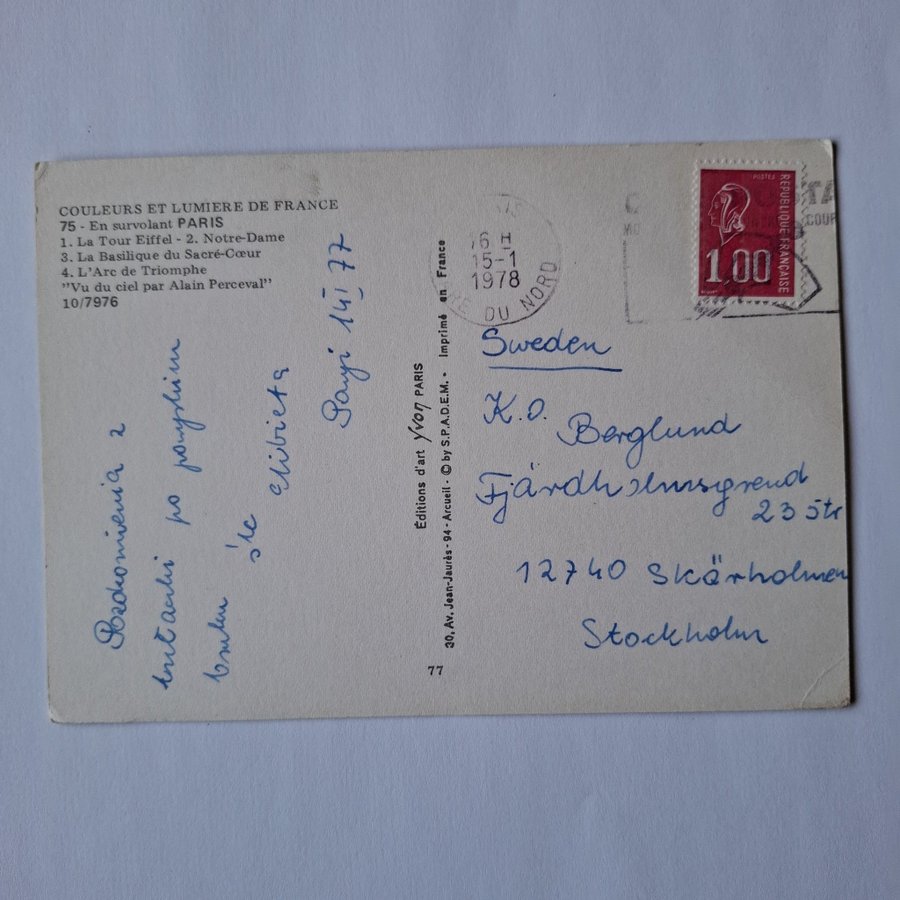 COULEURS ET LUMIERE DE FRANCE
75 - En survolant PARIS
1. La Tour Eiffel - 2. Notre-Dame
3. La Basilique du Sacré-Cœur
4. L'Arc de Triomphe
"Vu du ciel par Alain Perceval"
10/7976
14 I 77
Pozdrowienia z
po
śle Elżbieta
Éditions d'art yvon PARIS
30, Av. Jean-Jaurès - 94 - Arcueil - © by S.P.A.D.E.M. • Imprimé en France
77
16 H
15-1
1978
DU NORD
POSTES
REPUBLIQUE FRANÇAISE
1,00
Sweden
K.O.
Berglund
Fjärdholmsgrend
23 5tr
12740 Skärholmen
Stockholm